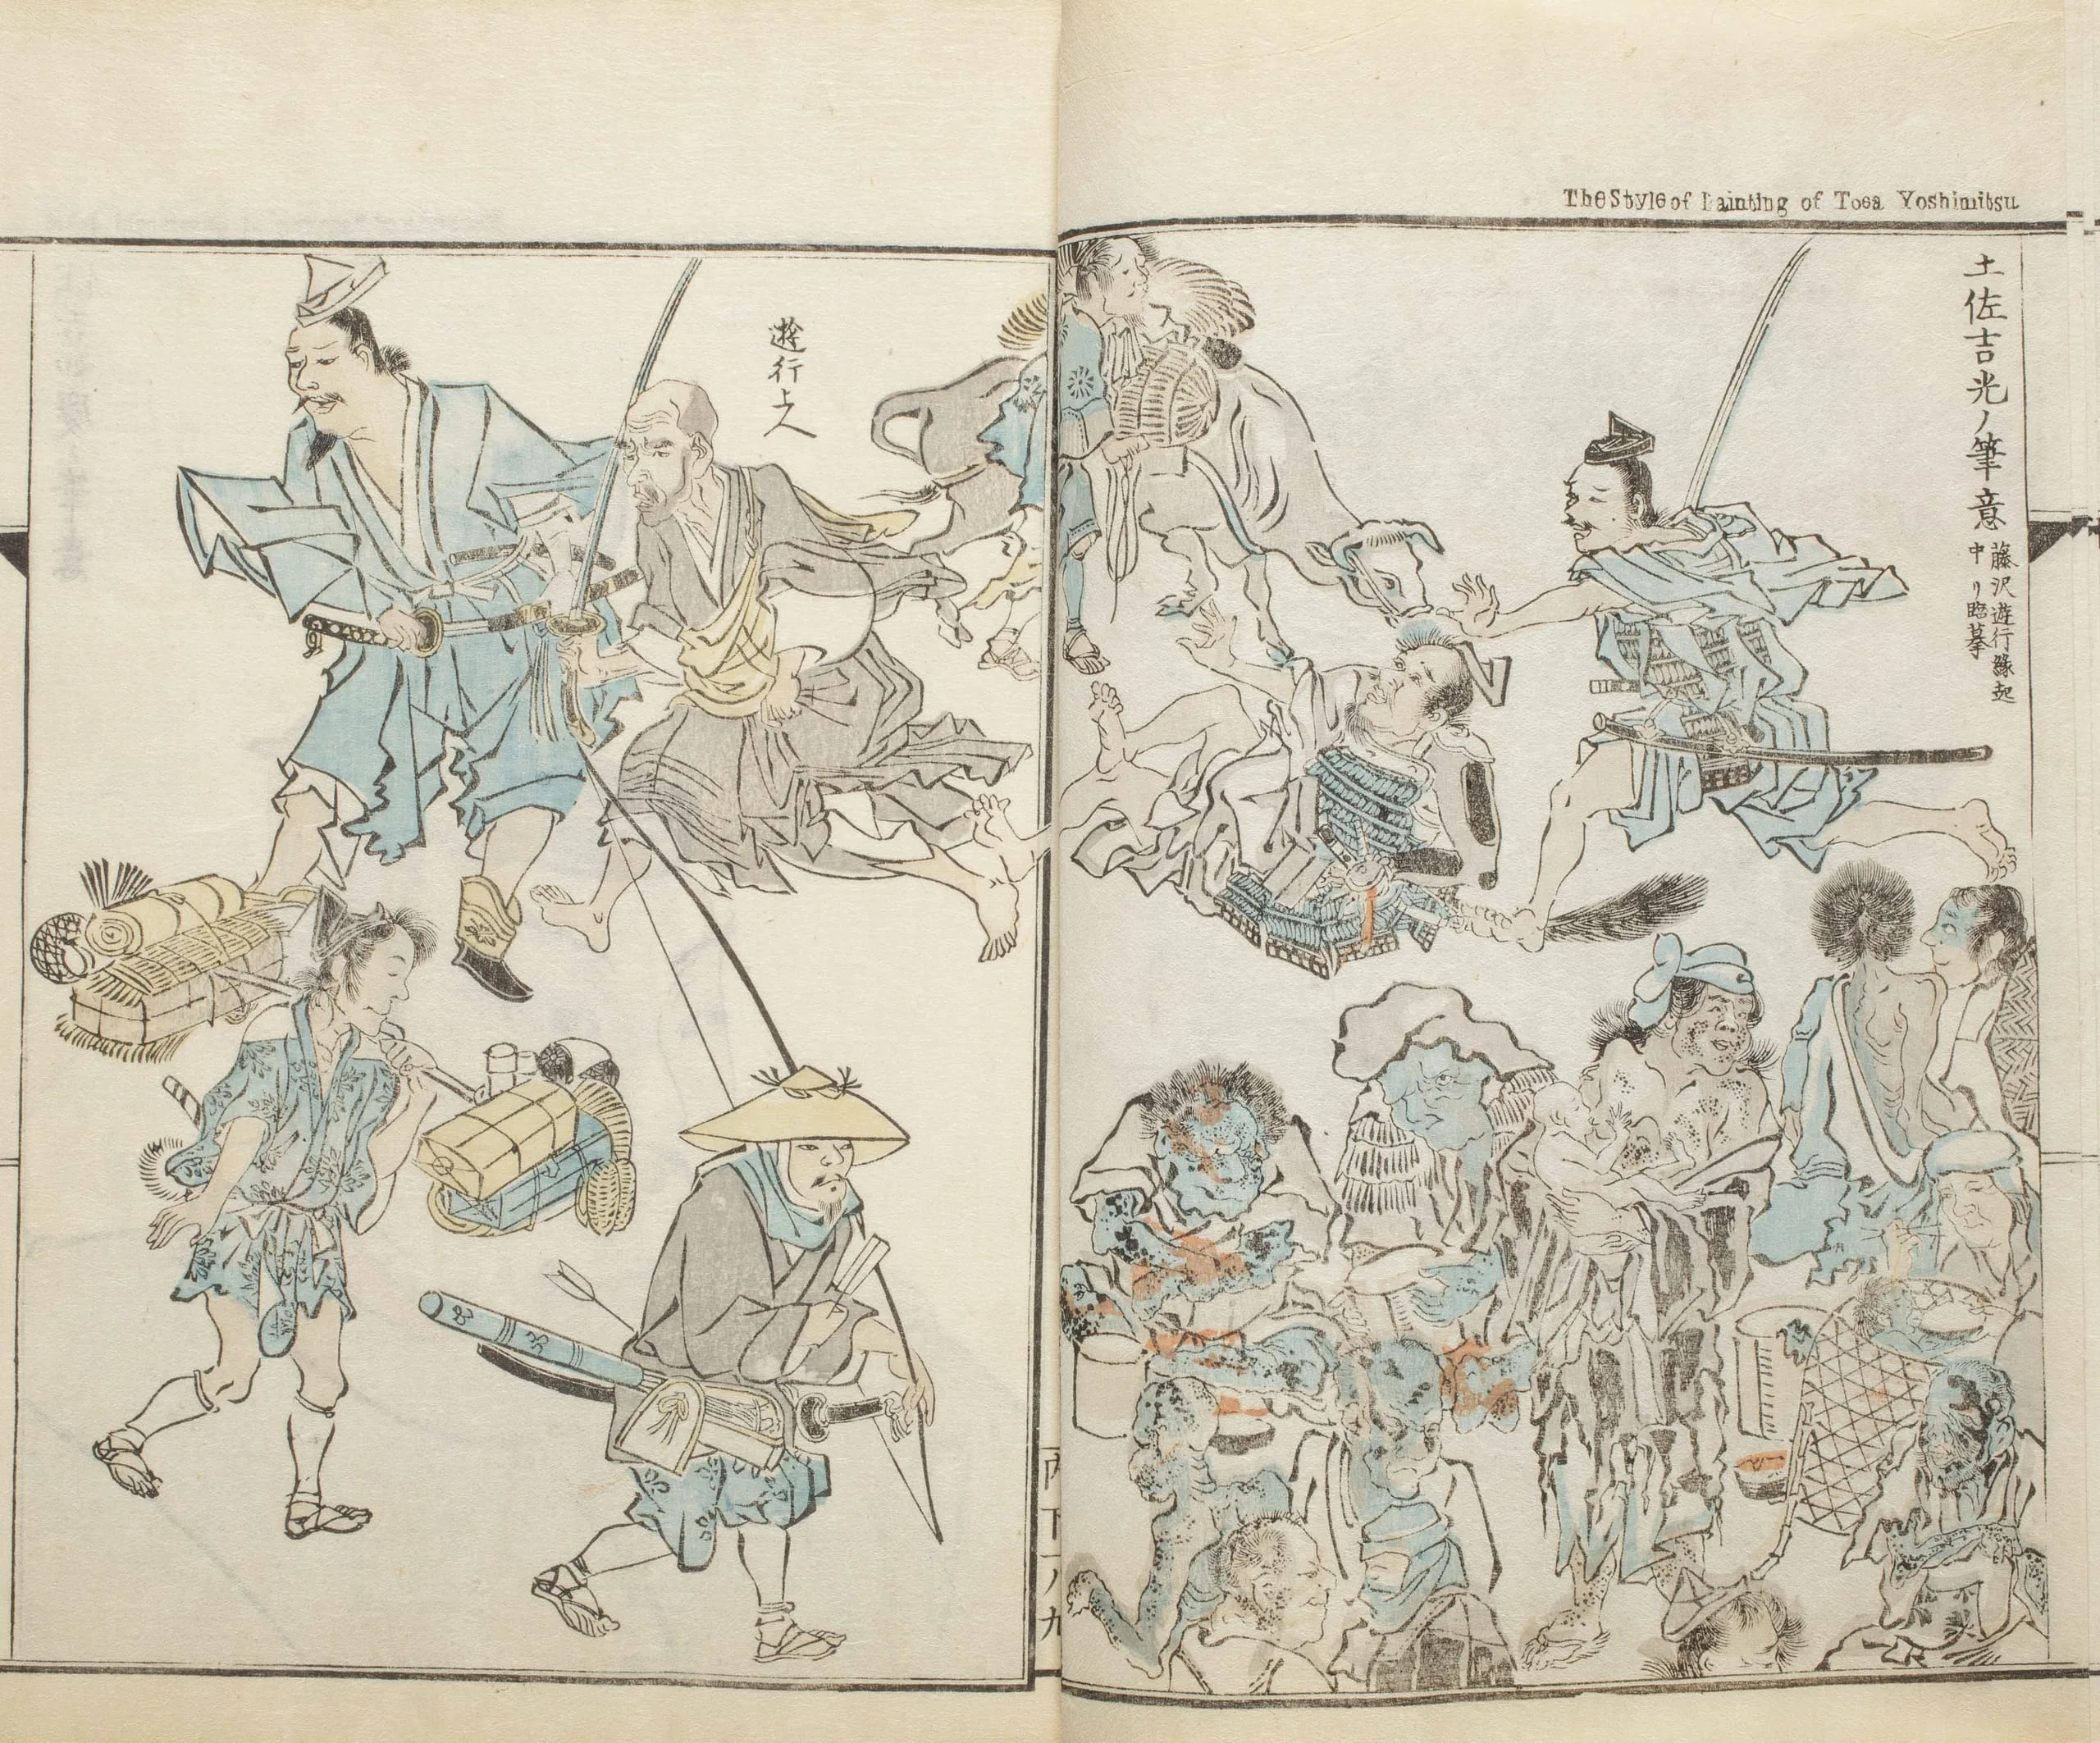 The Style of Painting of Tosa Yoshimitsu
土佐吉光ノ筆意
藤沢遊行縁起
中リ臨摹
遊行上人